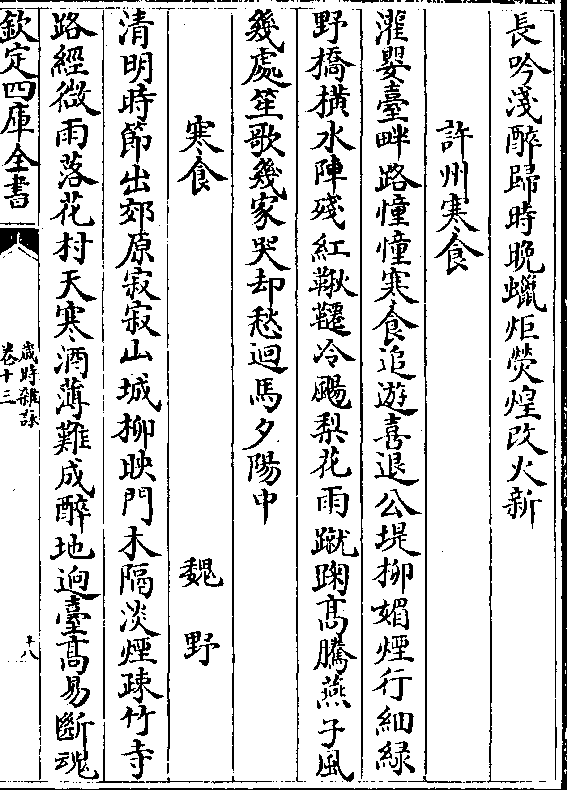 長吟淺醉歸時晚蠟炬熒煌改火新
許州寒食
濯纓臺畔路憧憧寒食追遊喜退公堤柳媚煙行細緑
野橋横水陣殘紅鞦韆冷颺梨花雨蹴踘髙騰燕子風
幾處笙歌幾家哭却愁迴馬夕陽中
寒食 魏野
清明時節出郊原寂寂山城柳映門木隔淡煙疎竹寺
路經微雨落花村天寒酒薄難成醉地逈臺髙易斷魂
欽定四庫全書
歳時雜詠
卷十三
十八